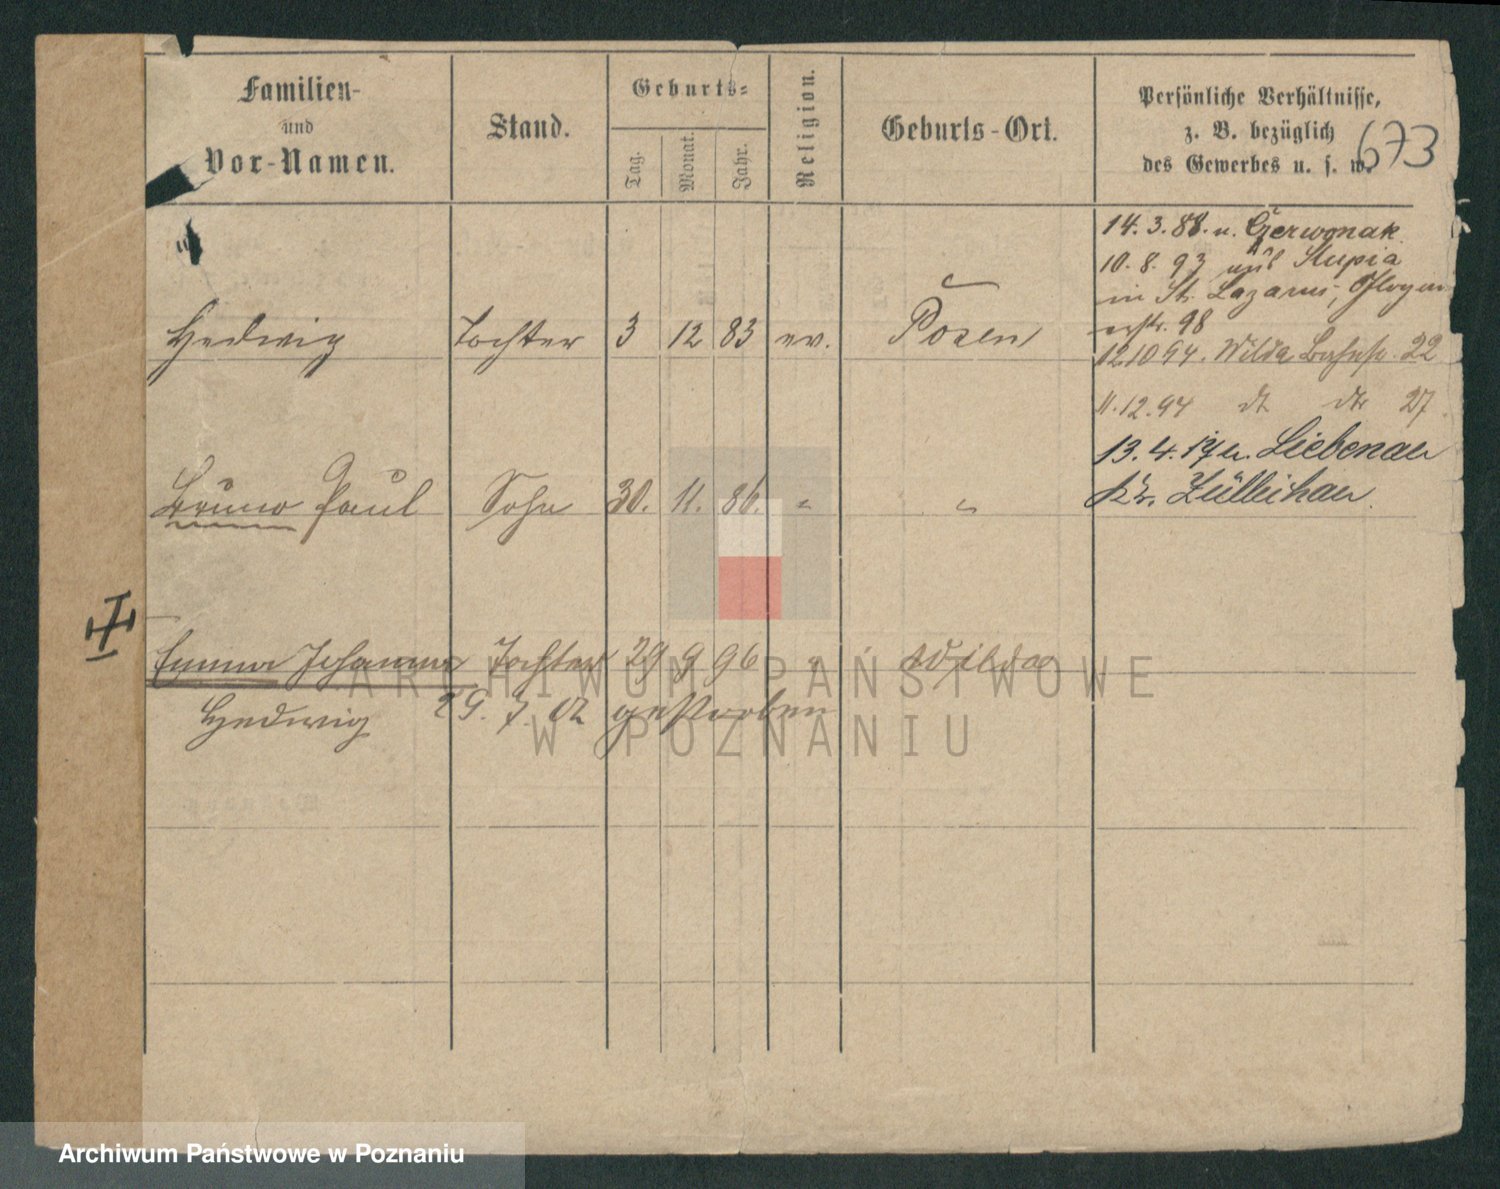 Familien-
und
Vor-Namen.
Stand.
Geburts-
Tag.
Monat.
Jahr.
Religion.
Geburts-Ort.
Persönliche Verhältnisse,
z. B. bezüglich
des Gewerbes u. s. w.
673
14. 3. 88. n. Czerwonak
10. 8. 93 aus Slupia
in St. Lazarus, Glogau
erstr. 98
Hedwig Tochter 3 12 83 ev. Posen
12.10 94. Wilda 22
11.12.94 dt dto 27
13. 4. 19 n. Liebenau
Kr. Züllichau
Bruno Paul Sohn 30. 11. 86. " "
Emma Johanna Tochter 29 9 96 " Wilda
Hedwig 29. 7. 02 gestorben
ARCHIWUM PAŃSTWOWE
W POZNANIU
Archiwum Państwowe w Poznaniu